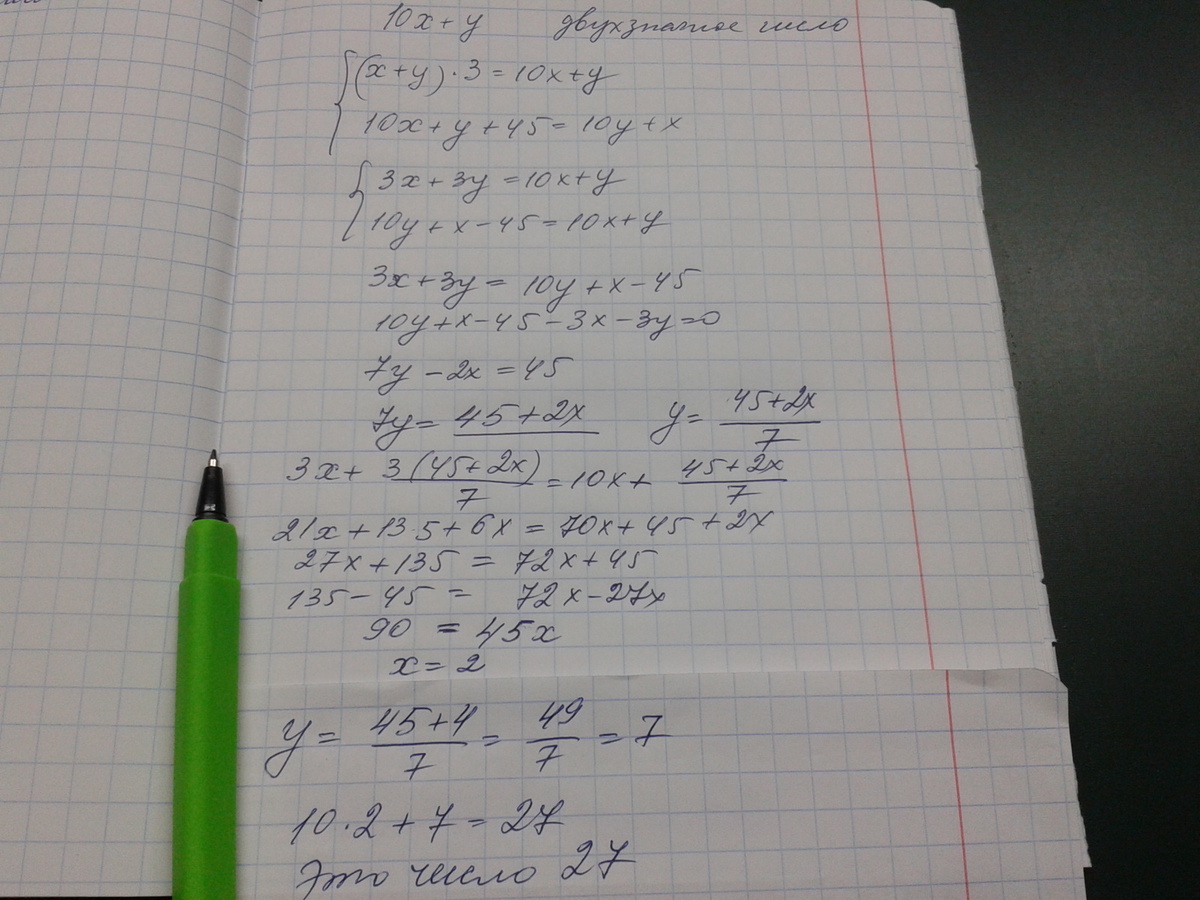 10x+y двухзначное число
(x+y)·3=10x+y
10x+y+45=10y+x
3x+3y=10x+y
10y+x-45=10x+y
3x+3y=10y+x-45
10y+x-45-3x-3y=0
7y-2x=45
7y=45+2x y=45+2x/7
3x+3(45+2x)/7=10x+45+2x/7
21x+135+6x=70x+45+2x
27x+135=72x+45
135-45=72x-27x
90=45x
x=2
y=45+4/7=49/7=7
10·2+7=27
Это число 27